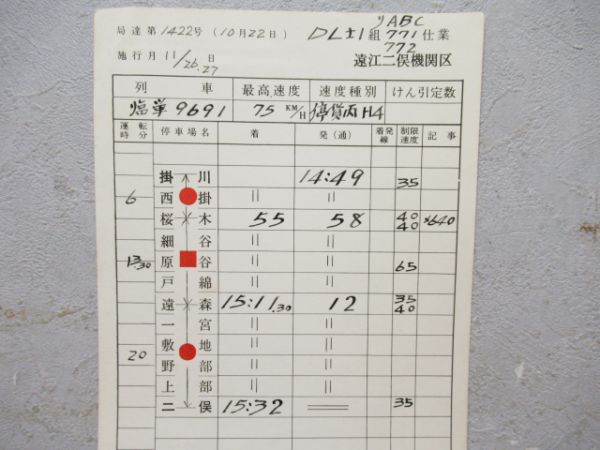 局達第1422号(10月22日) DL±1組 771仕業
リABC
772
施行月11/26.27日 遠江二俣機関区
列車 最高速度 速度種別 けん引定数
臨単9691 75KM/H 停貨丙H4
運転時分 停車場名 着 発(通) 着発線 制限速度 記事
掛川 14:49 35
6 西掛 〃 〃
桜木 55 58 40 40 ×640
細谷 〃 〃
13.30 原谷 〃 〃 65
戸綿 〃 〃
遠森 15:11.30 12 35 40
一宮 〃 〃
20 敷地 〃 〃
野部 〃 〃
上部 〃 〃
二俣 15:32 35